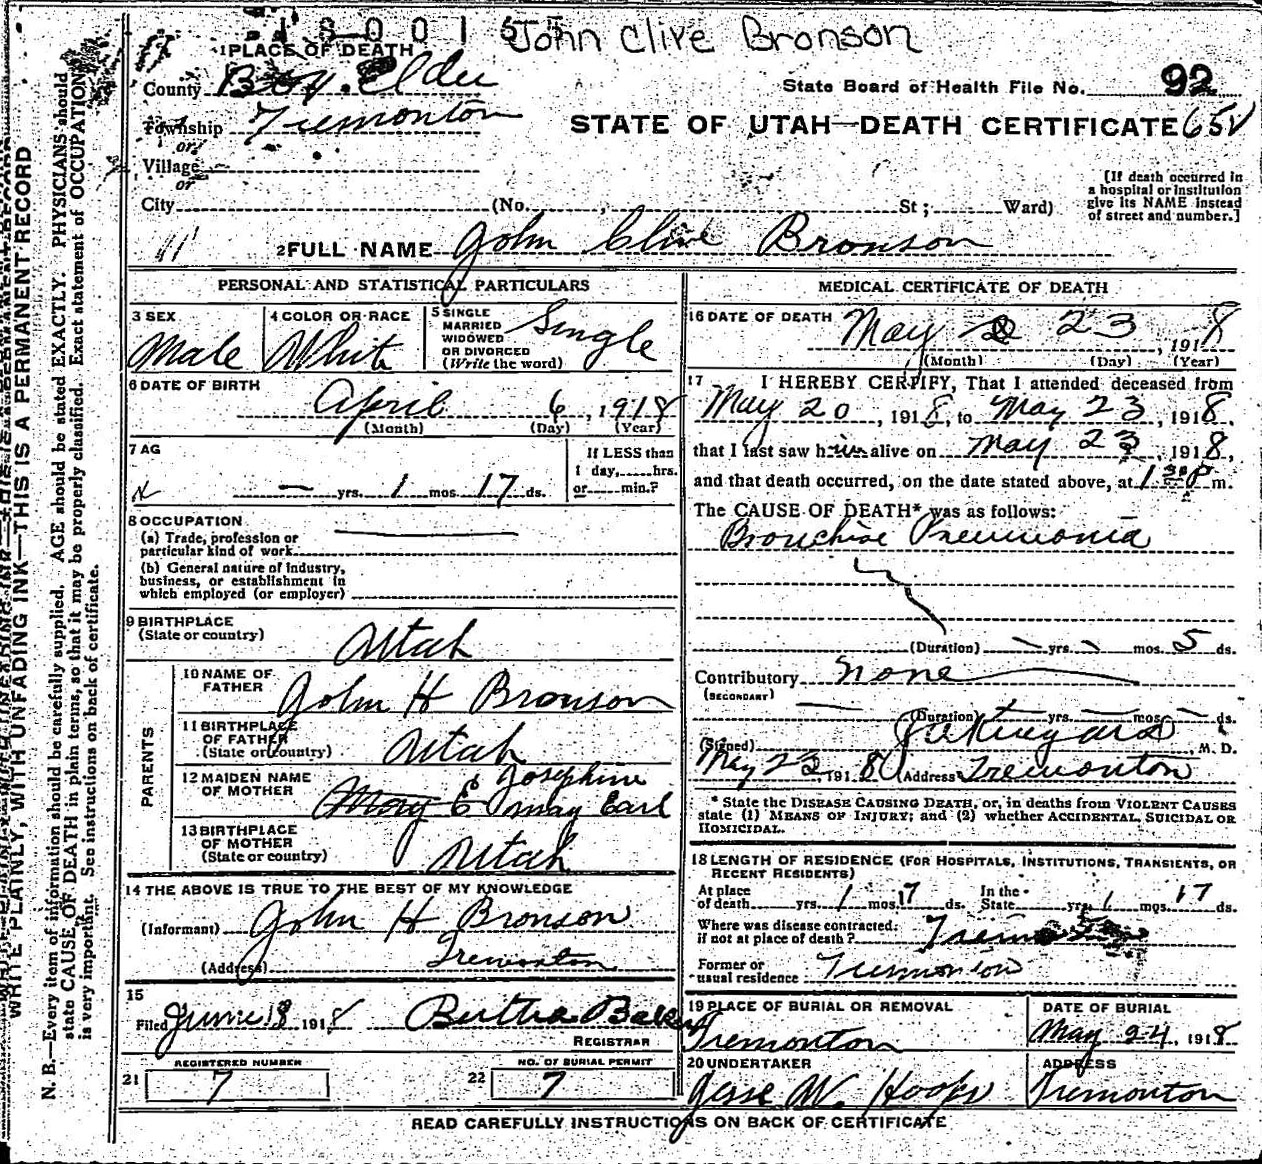 John Clive Bronson
1 PLACE OF DEATH
County Box Elder
State Board of Health File No. 92
Township Tremonton
or
STATE OF UTAH—DEATH CERTIFICATE 65V
Village
or
City (No. , St; Ward)
[If death occurred in
a hospital or institution
give its NAME instead
of street and number.]
2 FULL NAME John Clive Bronson
PERSONAL AND STATISTICAL PARTICULARS
3 SEX
Male
4 COLOR OR RACE
White
5 SINGLE
MARRIED
WIDOWED
OR DIVORCED
(Write the word)
Single
6 DATE OF BIRTH
April 6, 1918
(Month) (Day) (Year)
7 AG
— yrs. 1 mos. 17 ds.
If LESS than
1 day, hrs.
or min.?
8 OCCUPATION
(a) Trade, profession or
particular kind of work
(b) General nature of industry,
business, or establishment in
which employed (or employer)
9 BIRTHPLACE
(State or country)
Utah
PARENTS
10 NAME OF
FATHER
John H Bronson
11 BIRTHPLACE
OF FATHER
(State or country)
Utah
12 MAIDEN NAME
OF MOTHER
Josephine
Mary E May Earl
13 BIRTHPLACE
OF MOTHER
(State or country)
Utah
14 THE ABOVE IS TRUE TO THE BEST OF MY KNOWLEDGE
(Informant) John H Bronson
(Address) Tremonton
15
Filed June 18 1918 Bertha
REGISTRAR
REGISTERED NUMBER
21 7
NO. OF BURIAL PERMIT
22 7
MEDICAL CERTIFICATE OF DEATH
16 DATE OF DEATH May 23, 1918
(Month) (Day) (Year)
17 I HEREBY CERTIFY, That I attended deceased from
May 20, 1918, to May 23, 1918,
that I last saw him alive on May 23, 1918,
and that death occurred, on the date stated above, at 1 30 P m.
The CAUSE OF DEATH* was as follows:
Bronchial Pneumonia
(Duration) yrs. mos. 5 ds.
Contributory None
(SECONDARY)
(Duration) — yrs. — mos. — ds.
(Signed) M. D.
May 23 1918 (Address) Tremonton
* State the DISEASE CAUSING DEATH, or, in deaths from VIOLENT CAUSES
state (1) MEANS OF INJURY; and (2) whether ACCIDENTAL, SUICIDAL OR
HOMICIDAL.
18 LENGTH OF RESIDENCE (FOR HOSPITALS, INSTITUTIONS, TRANSIENTS, OR
RECENT RESIDENTS)
At place
of death yrs. 1 mos. 17 ds.
In the
State yrs. 1 mos. 17 ds.
Where was disease contracted,
if not at place of death?
Former or
usual residence Tremonton
19 PLACE OF BURIAL OR REMOVAL
Tremonton
DATE OF BURIAL
May 24, 1918
20 UNDERTAKER
Jesse W. Hoops
ADDRESS
Tremonton
READ CAREFULLY INSTRUCTIONS ON BACK OF CERTIFICATE
WRITE PLAINLY, WITH UNFADING INK—THIS IS A PERMANENT RECORD
N. B.—Every item of information should be carefully supplied. AGE should be stated EXACTLY. PHYSICIANS should
state CAUSE OF DEATH in plain terms, so that it may be properly classified. Exact statement of OCCUPATION
is very important. See instructions on back of certificate.